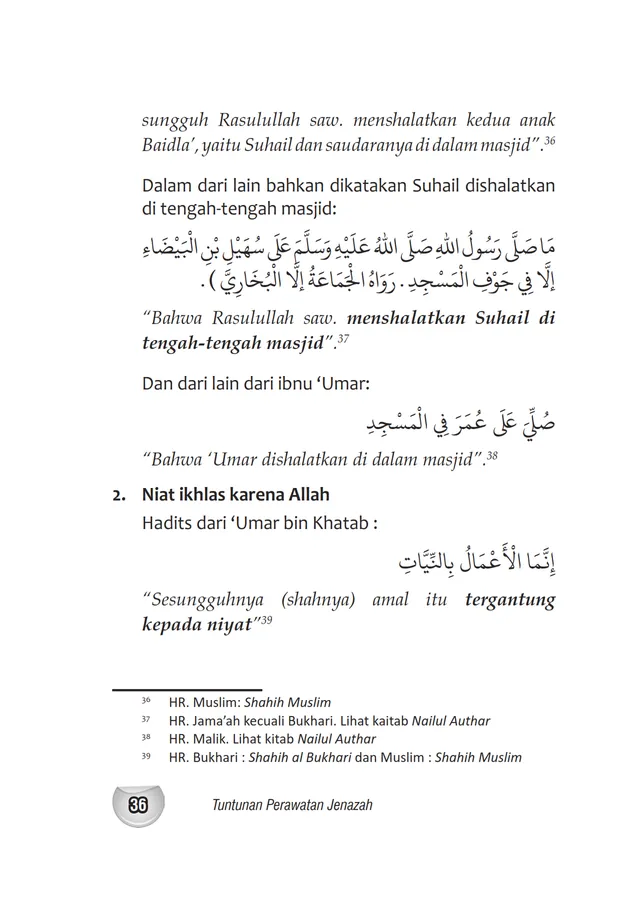 sungguh Rasulullah saw. menshalatkan kedua anak
Baidla’, yaitu Suhail dan saudaranya di dalam masjid”.36
Dalam dari lain bahkan dikatakan Suhail dishalatkan
di tengah-tengah masjid:
مَا صَلَّى رَسُولُ اللهِ صَلَّى اللهُ عَلَيْهِ وَسَلَّمَ عَلَى سُهَيْلِ بْنِ الْبَيْضَاءِ
إلَّا فِي جَوْفِ الْمَسْجِدِ . رَوَاهُ الْجَمَاعَةُ إلَّا الْبُخَارِيَّ ) .
“Bahwa Rasulullah saw. menshalatkan Suhail di
tengah-tengah masjid”.37
Dan dari lain dari ibnu ‘Umar:
صُلِّيَ عَلَى عُمَرَ فِي الْمَسْجِدِ
“Bahwa ‘Umar dishalatkan di dalam masjid”.38
2. Niat ikhlas karena Allah
Hadits dari ‘Umar bin Khatab :
إِنَّمَا الْأَعْمَالُ بِالنِّيَّاتِ
“Sesungguhnya (shahnya) amal itu tergantung
kepada niyat”39
36 HR. Muslim: Shahih Muslim
37 HR. Jama’ah kecuali Bukhari. Lihat kaitab Nailul Authar
38 HR. Malik. Lihat kitab Nailul Authar
39 HR. Bukhari : Shahih al Bukhari dan Muslim : Shahih Muslim
36 Tuntunan Perawatan Jenazah